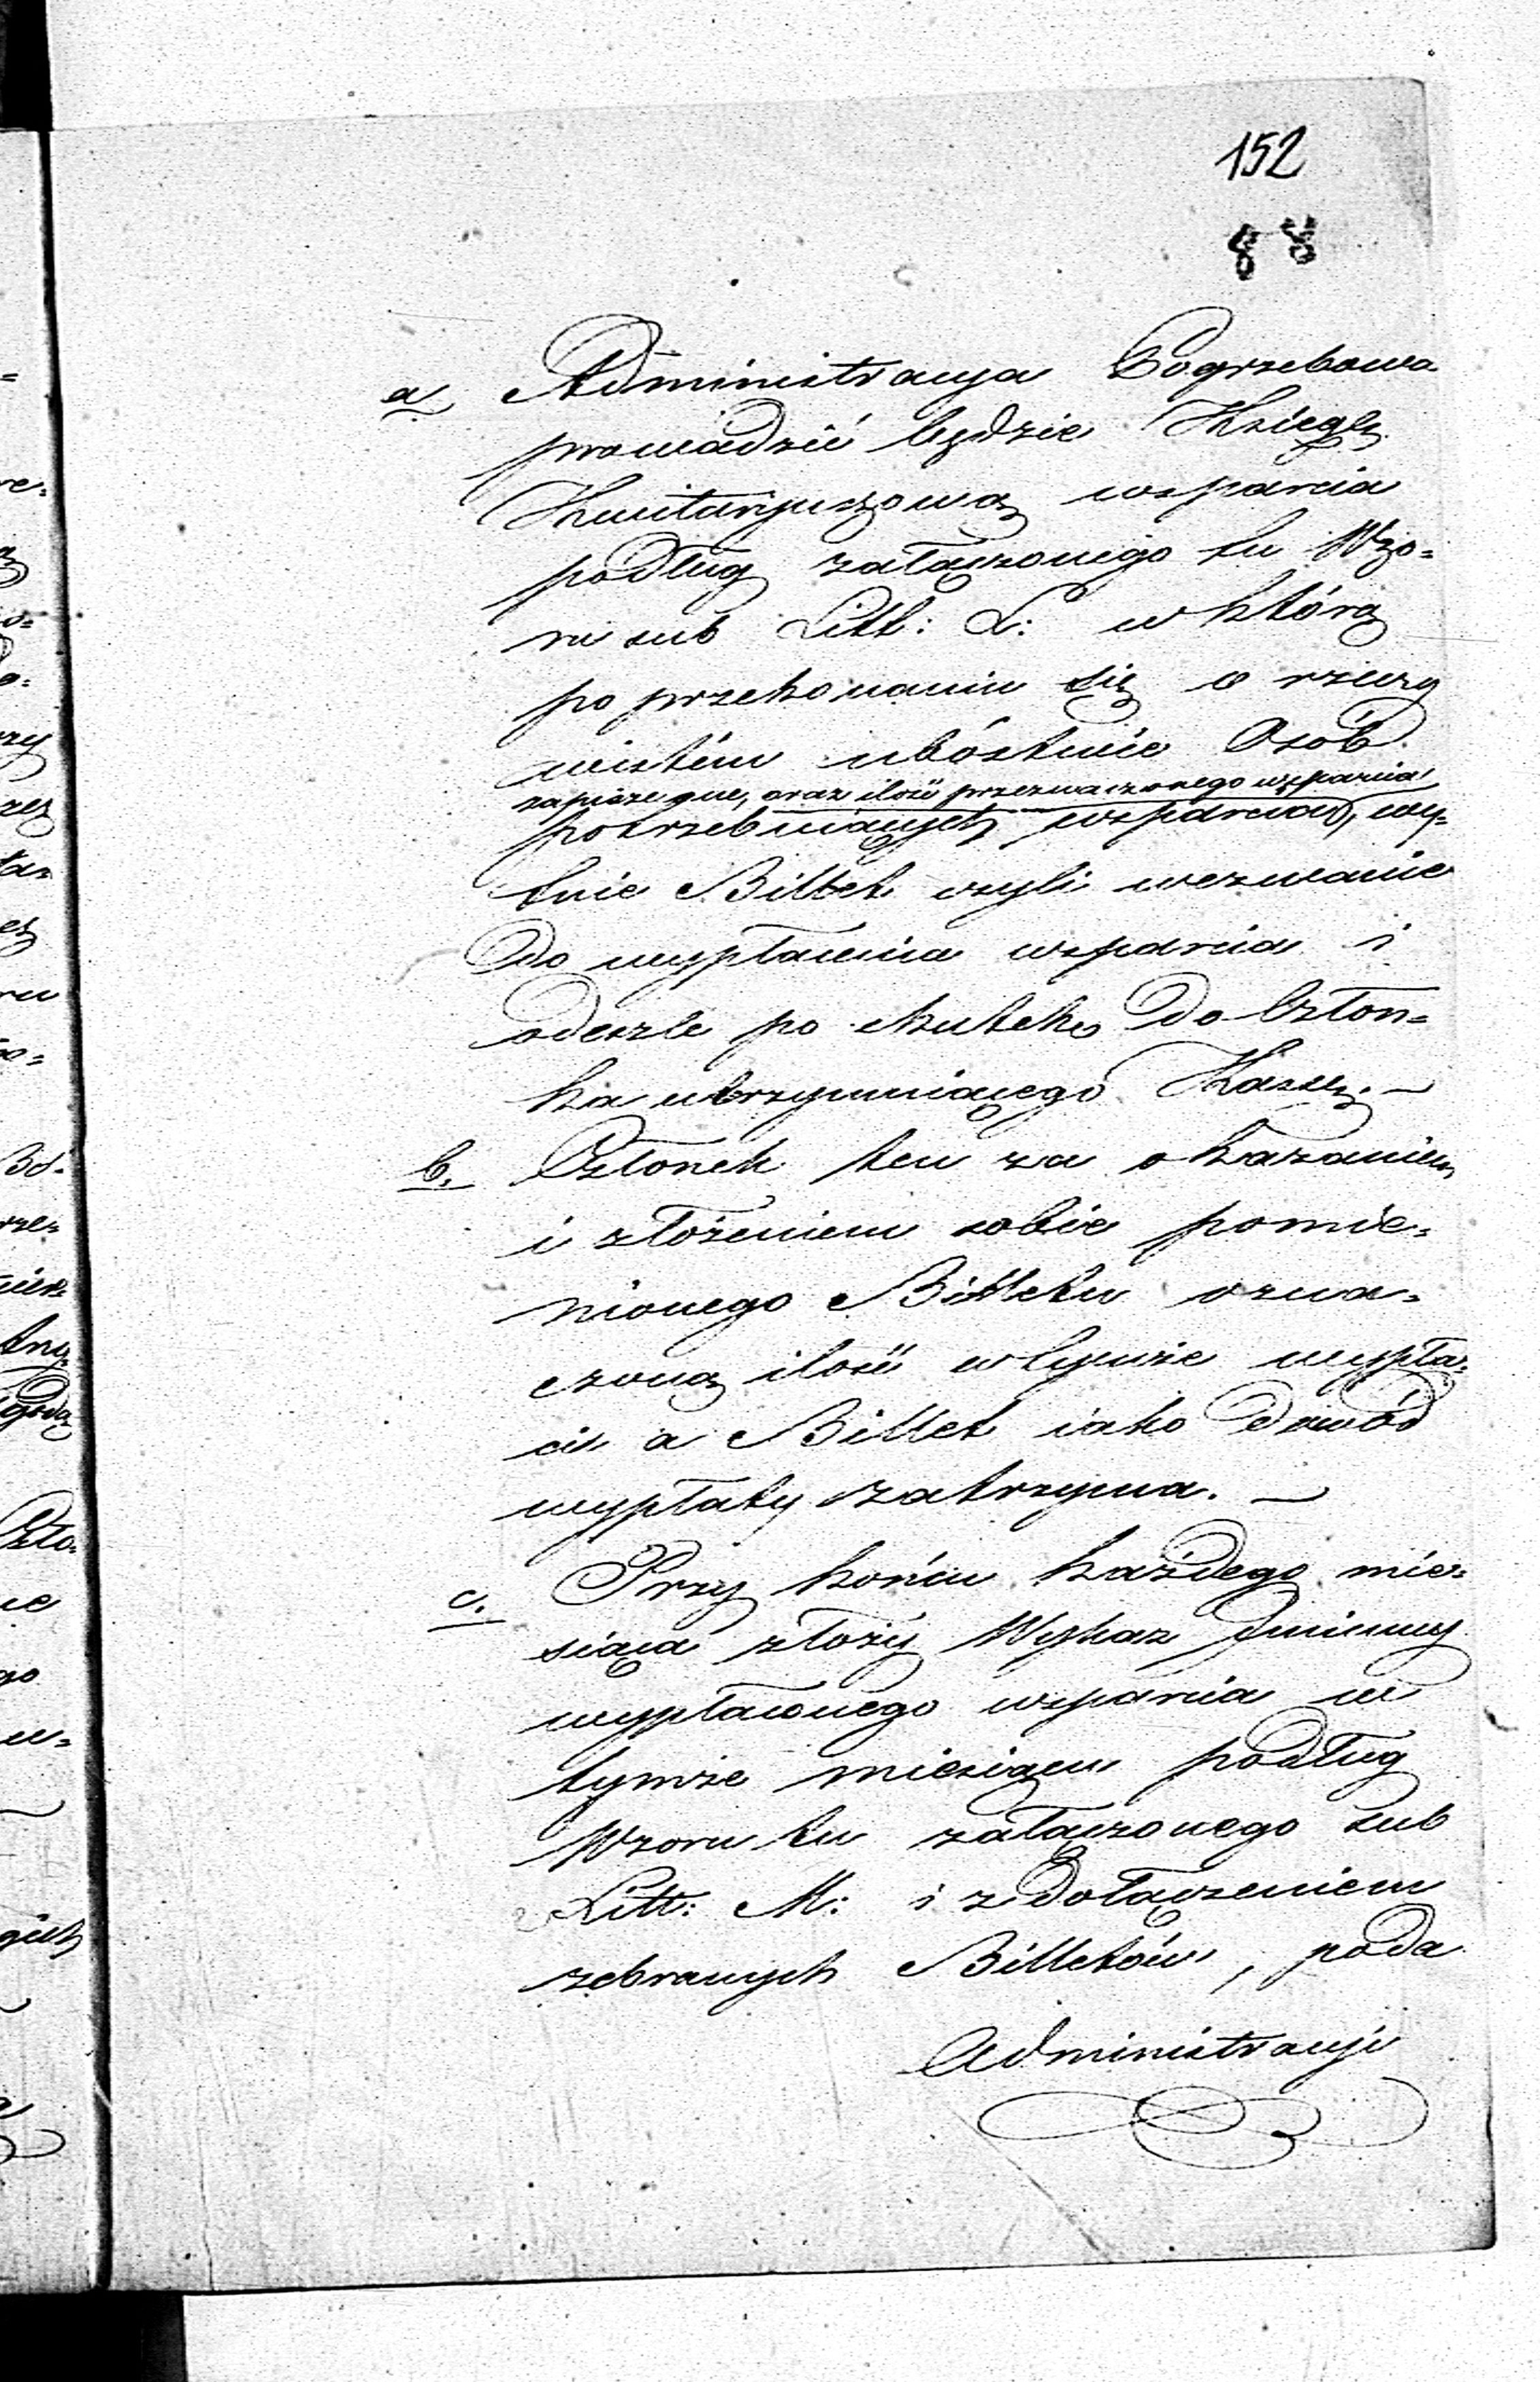 152
88
a, Administracya Pogrzebowa
prowadzić będzie Księgę
Kwitaryuszową wsparcia
podług załączonego tu Wzo=
ru sub Litt: L: w którą
po przekonaniu się o rzeczy
wistém ubóstwie Osób
zapisze one, oraz ilość przeznaczonego wsparcia
potrzebuiących wsparcia, wy=
tnie Billet czyli wezwanie
do wypłacenia wsparcia i
odeszle po skutek do Człon=
ka utrzymuiącego Kassę. —
b. Członek ten za okazaniem
i złożeniem sobie pomie=
nionego Billetu ozna=
czoną ilość w lynże wypła=
ci a Billet iako dowód
wypłaty zatrzyma. —
c. Przy końcu każdego mie=
siąca złoży Wykaz Imienny
wypłaconego wsparcia w
tymże miesiącu podług
Wzoru tu załączonego sub
Litt: M: i z dołączeniem
zebranych Billetów, poda
Administracyi